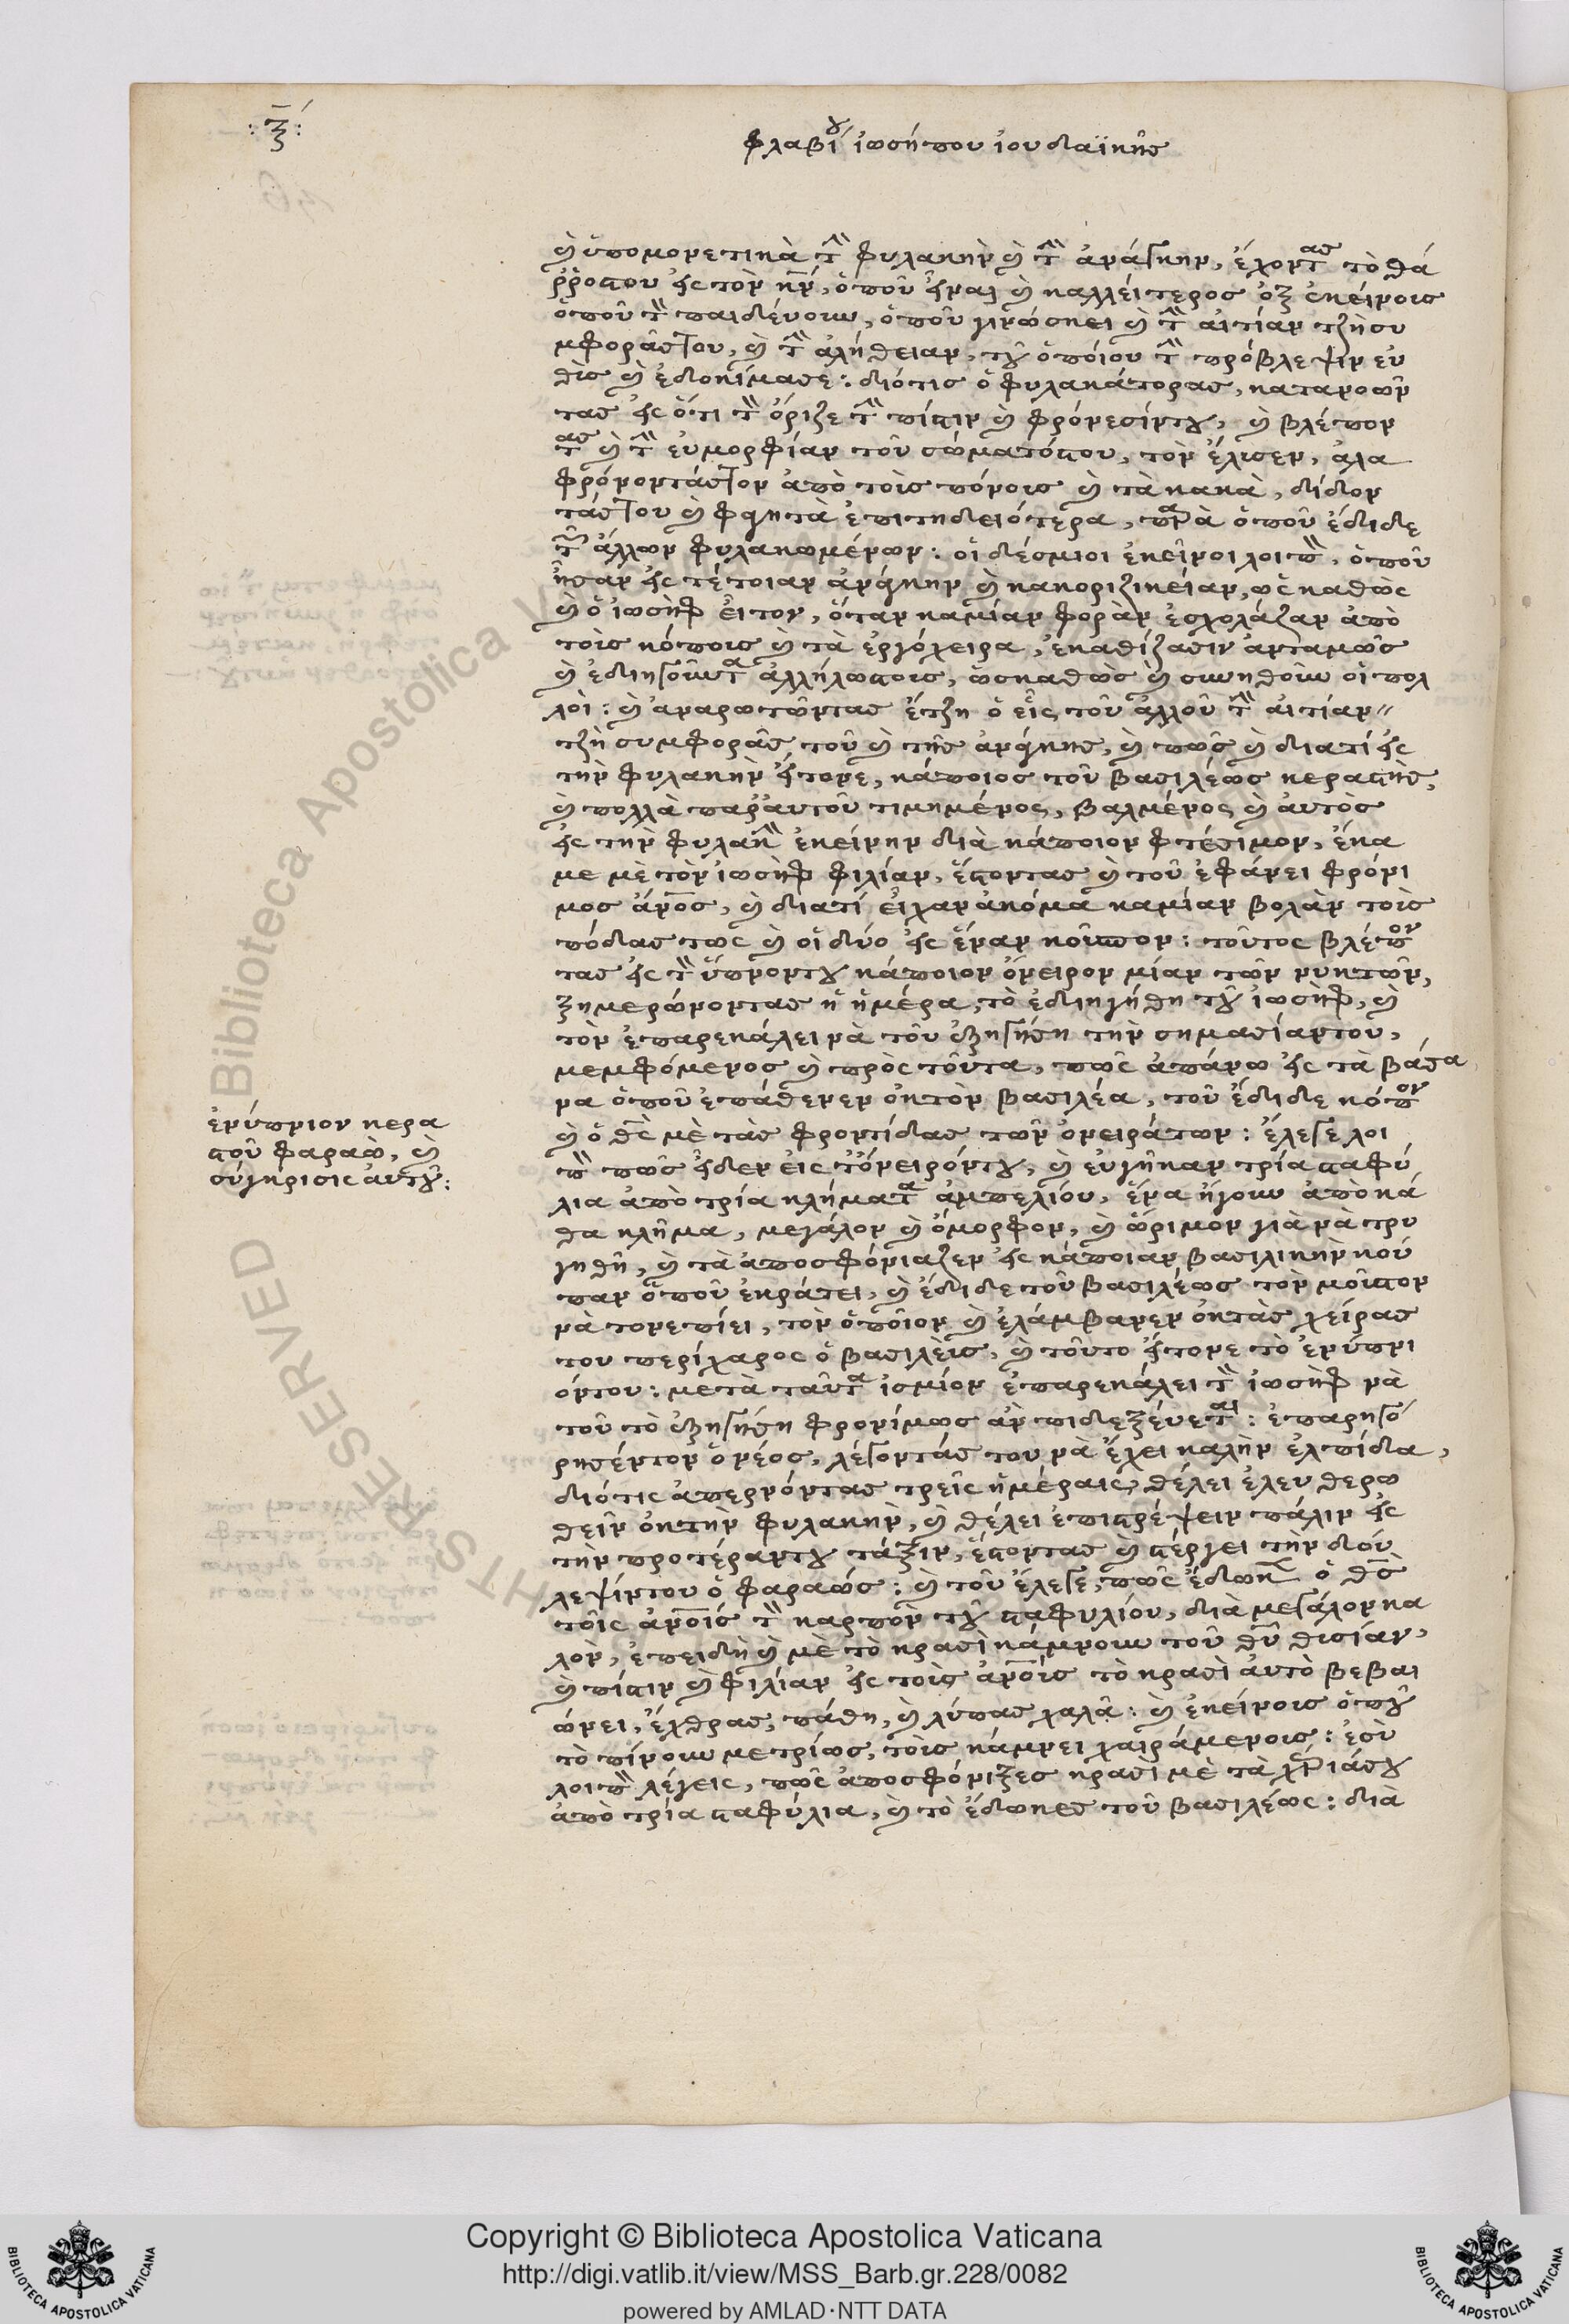 :ξ̄:
φλαβίου ἰωσήπου ἰουδαϊκῆς
καὶ ὑπομονετικὰ τὴν φυλακὴν καὶ τὴν ἀνάγκην, ἔχοντας τὸ θά
ρρος του εἰς τὸν κν̄, ὁποῦ εἶναι καὶ καλλείτερος ὀξ ἐκείνοις
ὁποῦ τὸν παιδεύουν, ὁποῦ γινώσκει καὶ τὴν αἰτίαν τζὴ συ
μφοράς του, καὶ τὴν ἀλήθειαν, τοῦ ὁποίου τὴν πρόβλεψιν εὐ
θὶς καὶ ἐδοκίμασε: διότις ὁ φυλακάτορας, κατανοών
τας εἰς ὅτι τὸν ὅριζε τὴν πίστιν καὶ φρόνεσίν του, καὶ βλέπον
τας καὶ τὴν εὐμορφίαν τοῦ σώματός του, τὸν ἔλισεν, ἀλα
φρόνοντάς τον ἀπὸ τοὶς πόνοις καὶ τὰ κακὰ, δίδον
τάς του καὶ φαγητὰ ἐπιτηδειότερα, παρὰ ὁποῦ ἔδιδε
τῶν ἄλλων φυλακωμένων: οἱ δέσμιοι ἐκεῖνοι λοιπὸν, ὁποῦ
ἦσαν εἰς τέτοιαν ἀνάγκην καὶ κακοριζικείαν, ὡς καθὼς
καὶ ὁ ἰωσὴφ εἶτον, ὅταν καμίαν φορὰν ἐσχολάζαν ἀπὸ
τοὶς κόποις καὶ τὰ ἐργόχειρα, ἐκαθίζασιν ἀνταμῶς
καὶ ἐδιηγοῦντα ἀλλήλως τοις, ὡσκαθὼς καὶ συνηθοῦν οἱ πολ
λοὶ: καὶ ἀναρωτῶντας ἔτζη ὁ εἷς τοῦ ἀλλοῦ τὴν αἰτίαν
τζὴ συμφορᾶς τοῦ καὶ τῆς ἀνάγκης, καὶ πῶς καὶ διατί εἰς
τὴν φυλακὴν εἴτονε, κάποιος τοῦ βασιλέως κεραστὴς,
καὶ πολλὰ παρ' αὐτοῦ τιμημένος, βαλμένος καὶ αὐτὸς
εἰς τὴν φυλακὴν ἐκείνην διὰ κάποιον φτέσιμον, ἔκα
με μὲ τὸν ἰωσὴφ φιλίαν, ἔστοντας καὶ τοῦ ἐφάνει φρόνι
μος ἄνος, καὶ διατί εἶχαν ἀκόμα καμίαν βολὰν τοὶς
πόδας τως καὶ οἱ δύο εἰς ἕναν κοῦτσον: τοῦτος βλέπον
τας εἰς τὸν ὕπνον του κάποιον ὄνειρον μίαν τῶν νυκτῶν,
ξημερώνοντας ἡ ἡμέρα, τὸ ἐδιηγήθη τοῦ ἰωσὴφ, καὶ
τὸν ἐπαρεκάλει νὰ τοῦ ἐξηγήθη τὴν σημασίαν του,
μεμφόμενος καὶ πρὸς τοῦτα, πῶς ἀπάνω εἰς τὰ βάσα
να ὁποῦ ἐπάθενεν ὀκ τὸν βασιλέα, τοῦ ἔδιδε κόπον
καὶ ὁ θς̄ μὲ τὰς φροντίδας τῶν ὀνειράτων: ἔλεγε λοι
πὸν πῶς εἶδεν εἰς τ' ὄνειρόν του, καὶ εὐγῆκαν τρία σταφύ
λια ἀπὸ τρία κλήματα ἀμπελίου, ἕνα ἤγουν ἀπὸ κά
θα κλῆμα, μεγάλον καὶ ὄμορφον, καὶ ὥριμον γιὰ νὰ τρυ
γηθῆ, καὶ τὰ ἀποσφόνιαζεν εἰς κάποιαν βασιλικὴν κού
παν ὁποῦ ἐκράτει, καὶ ἔδιδε τοῦ βασιλέως τὸν μοῦστον
νὰ τονε πίει, τὸν ὁποῖον καὶ ἐλάμβανεν ὀκ τὰς χείρας
του περίχαρος ὁ βασιλεὶς, καὶ τοῦτο εἴτονε τὸ ἐνύπνι
όν του: μετὰ ταῦτα ἰσμίον ἐπαρεκάλει τὸν ἰωσὴφ νὰ
τοῦ τὸ ἐξηγήθη φρονίμως ἂν πιδεξέυεται: ἐπαρηγό
ρησέν τον ὁ νέος, λέγοντάς του νὰ ἔχει καλὴν ἐλπίδα,
διότις ἀπερνόντας τρεῖς ἡμέραις, θέλει ἐλευθερω
θεῖν ὀκ τὴν φυλακὴν, καὶ θέλει ἐπιστρέψειν πάλιν εἰς
τὴν προτέραν του τάξιν, ἔστοντας καὶ στέργει τὴν δού
λεψίν του ὁ φαραώς: καὶ τοῦ ἔλεγε, πῶς ἔδωκεν ὁ θς̄
τοῖς ἀνοίς τὸν καρπὸν τοῦ σταφυλίου, διὰ μεγάλον κα
λὸν, ἐπειδὴ καὶ μὲ τὸ κρασὶ κάμνουν τοῦ θῦ θισίαν,
καὶ πίστιν καὶ φιλίαν εἰς τοὶς ἀνοίς τὸ κρασὶ αὐτὸ βεβαι
ώνει, ἔχθρας, πάθη, καὶ λύπας χαλᾶ: καὶ ἐκείνοις ὁποῦ
τὸ πίνουν μετρίως, τοὶς κάμνει χαιράμενοις: ἐσὺ
λοιπὸν λέγεις, πῶς ἀποσφόνιξες κρασὶ μὲ τὰ χέριάσου
ἀπὸ τρία σταφύλια, καὶ τὸ ἔδωκες τοῦ βασιλέως: διὰ
ἐνύπνιον κερα
στοῦ φαραὼ, καὶ
σύγκρισις αὐτοῦ:
Copyright © Biblioteca Apostolica Vaticana
http://digi.vatlib.it/view/MSS_Barb.gr.228/0082
powered by AMLAD·NTT DATA